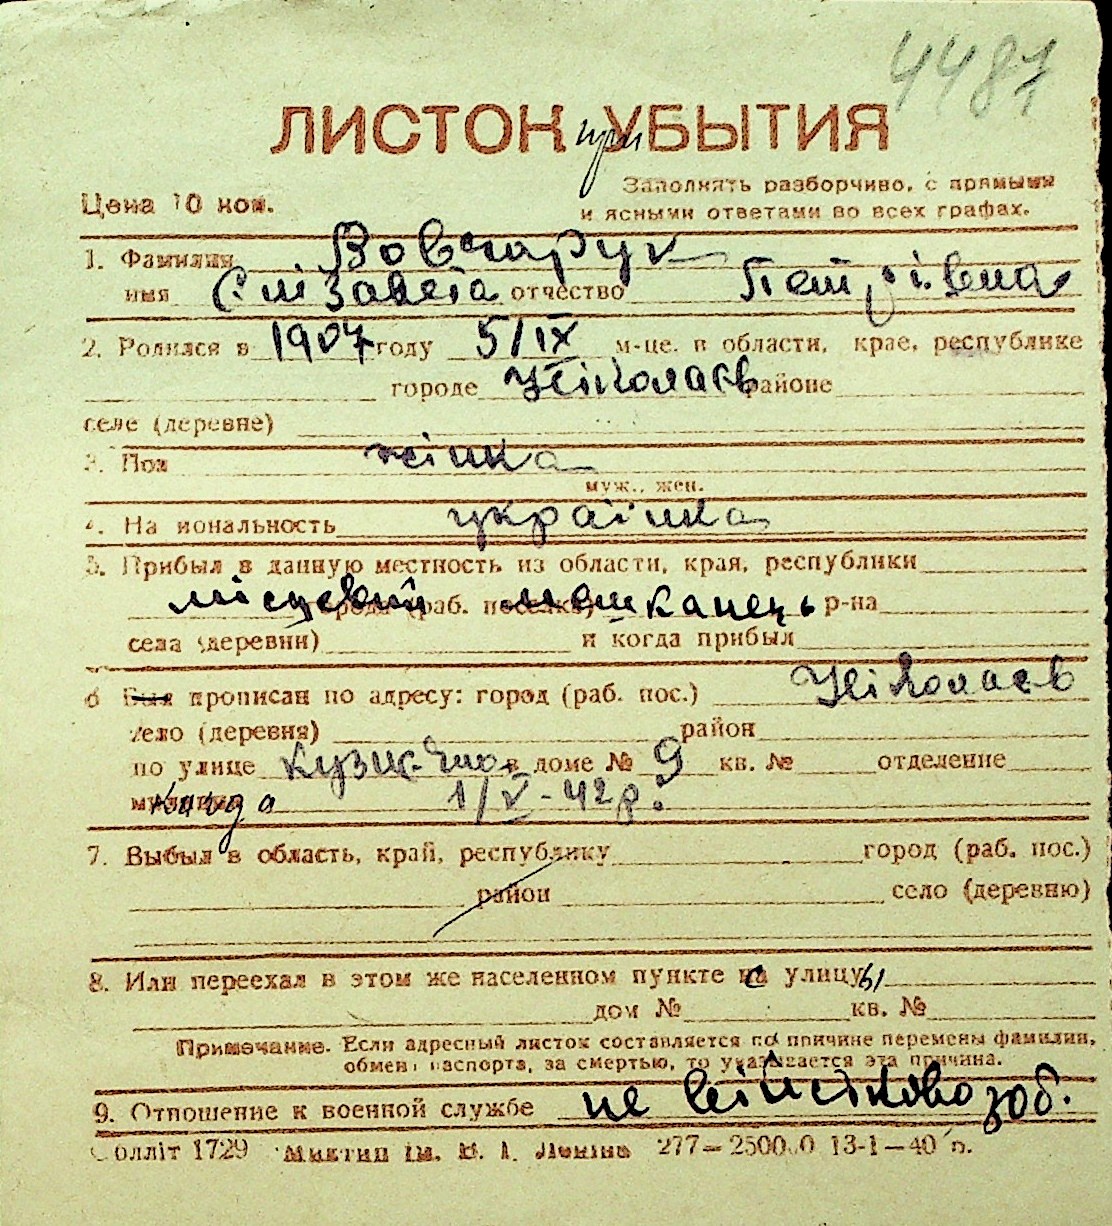 4481
ЛИСТОК при УБЫТИЯ
Цена 10 коп.
Заполнять разборчиво, с прямыми
и ясными ответами во всех графах.
1. Фамилия Вовчарук
имя Єлізавета отчество Петрівна
2. Родился в 1907 году 5/IX м-це. в области, крае, республике
городе Ніколаєв районе
селе (деревне)
3. Пол жінка
муж., жен.
4. На иональность українка
5. Прибыл в данную местность из области, края, республики
місцевий города (раб. поселка) мешканець р-на
села (деревни) и когда прибыл
6 Был прописан по адресу: город (раб. пос.) Ніколаєв
село (деревня) район
по улице в доме № 9 кв. № отделение
милиции когда 1/V-42р.
7. Выбыл в область, край, республику город (раб. пос.)
район село (деревню)
8. Или переехал в этом же населенном пункте с улицы
дом № кв. №
Примечание. Если адресный листок составляется по причине перемены фамилии,
обмен паспорта, за смертью, то указывается эта причина.
9. Отношение к военной службе не військовозоб.
олліт 1729 Миктип ім. В. І. Леніна 277—250000 13-1—40 р.